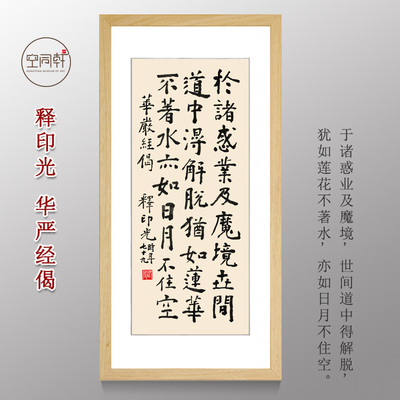 空同轩
释印光 华严经偈
於諸惑業及魔境世間
道中得解脫猶如蓮華
不著水亦如日月不住空
華嚴經偈 釋印光時年七十九
于诸惑业及魔境，世间道中得解脱，
犹如莲花不著水，亦如日月不住空。